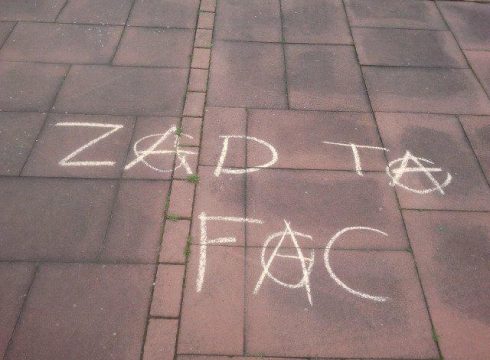 ZAD TA
FAC